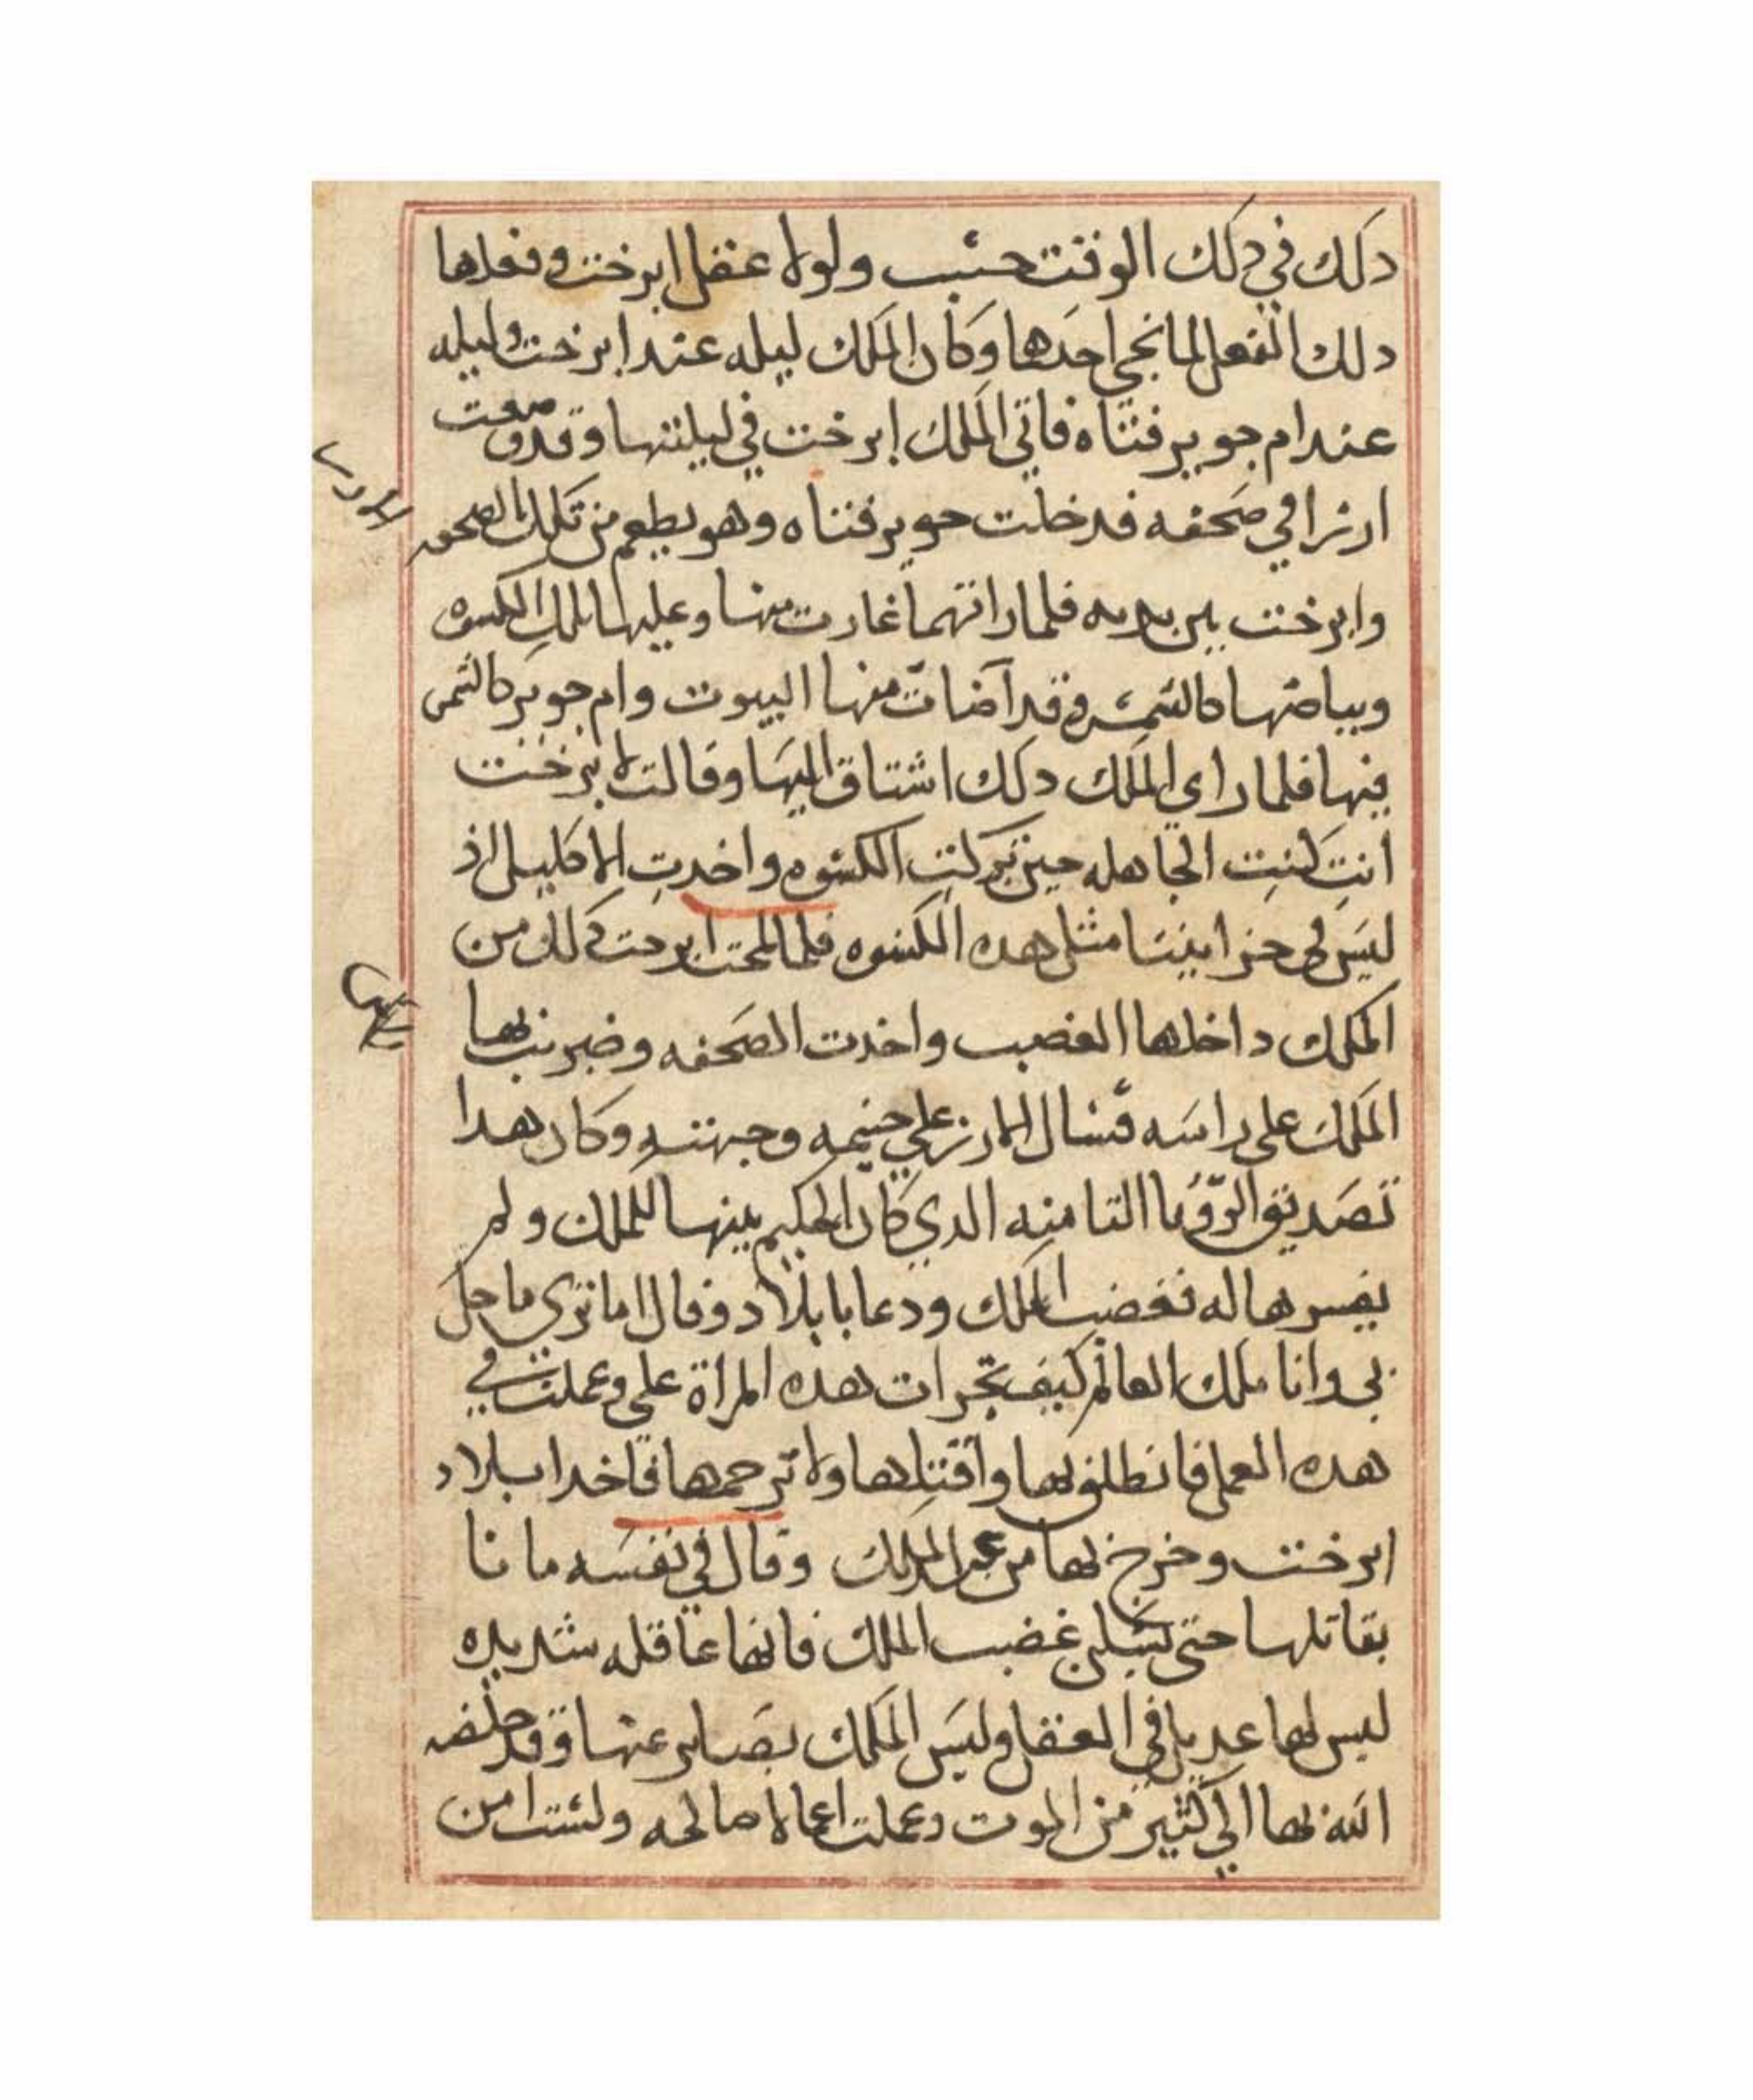 دلك في دلك الوقت حسب ولولا عقل ابرخت وفعلها
دلك الفعل لما نجي احدها وكان الملك ليله عند ابرخت وليله
عند ام جوبر فتناه فاتي الملك ابرخت في ليلتها وقد صنعت
ارزا في صحفه فدخلت جوبر فتناه وهو يطعم من تلك الصحفه
وابرخت بين يديه فلما راتهما غارت منها وعليها تلك الكسوه
وبياضها كالشمس وقد اضات منها البيوت وام جوبر كالشمس
فيها فلما راي الملك دلك اشتاق اليها وقالت لابرخت
انتِ كنتِ الجاهله حين تركتِ الكسوه واخدتِ الاكليل اذ
ليس في خزايننا مثل هده الكسوه فلما لمحت ابرخت دلك من
الملك داخلها الغضب واخدت الصحفه وضربت بها
الملك علي راسه فسال الارز علي جسمه وجبهته وكان هدا
تصديق الرؤيا التامنه الدي كان الحكيم بينها للملك ولم
يفسرها له فغضب الملك ودعا بابلاد وقال اما تري ما حل
بي وانا ملك العالم كيف تجرات هده المراة علي وعملت في
هده العمل فانطلق بها واقتلها ولا ترحمها فاخد ابلاد
ابرخت وخرج بها من عند الملك وقال في نفسه ما نا
بقاتلها حتي يسكن غضب الملك فانها عاقله شديده
ليس لها عديل في العقل وليس الملك بصابر عنها وقد خلص
الله بها الي كثير من الموت وعملت اعمالا صالحه ولست امن